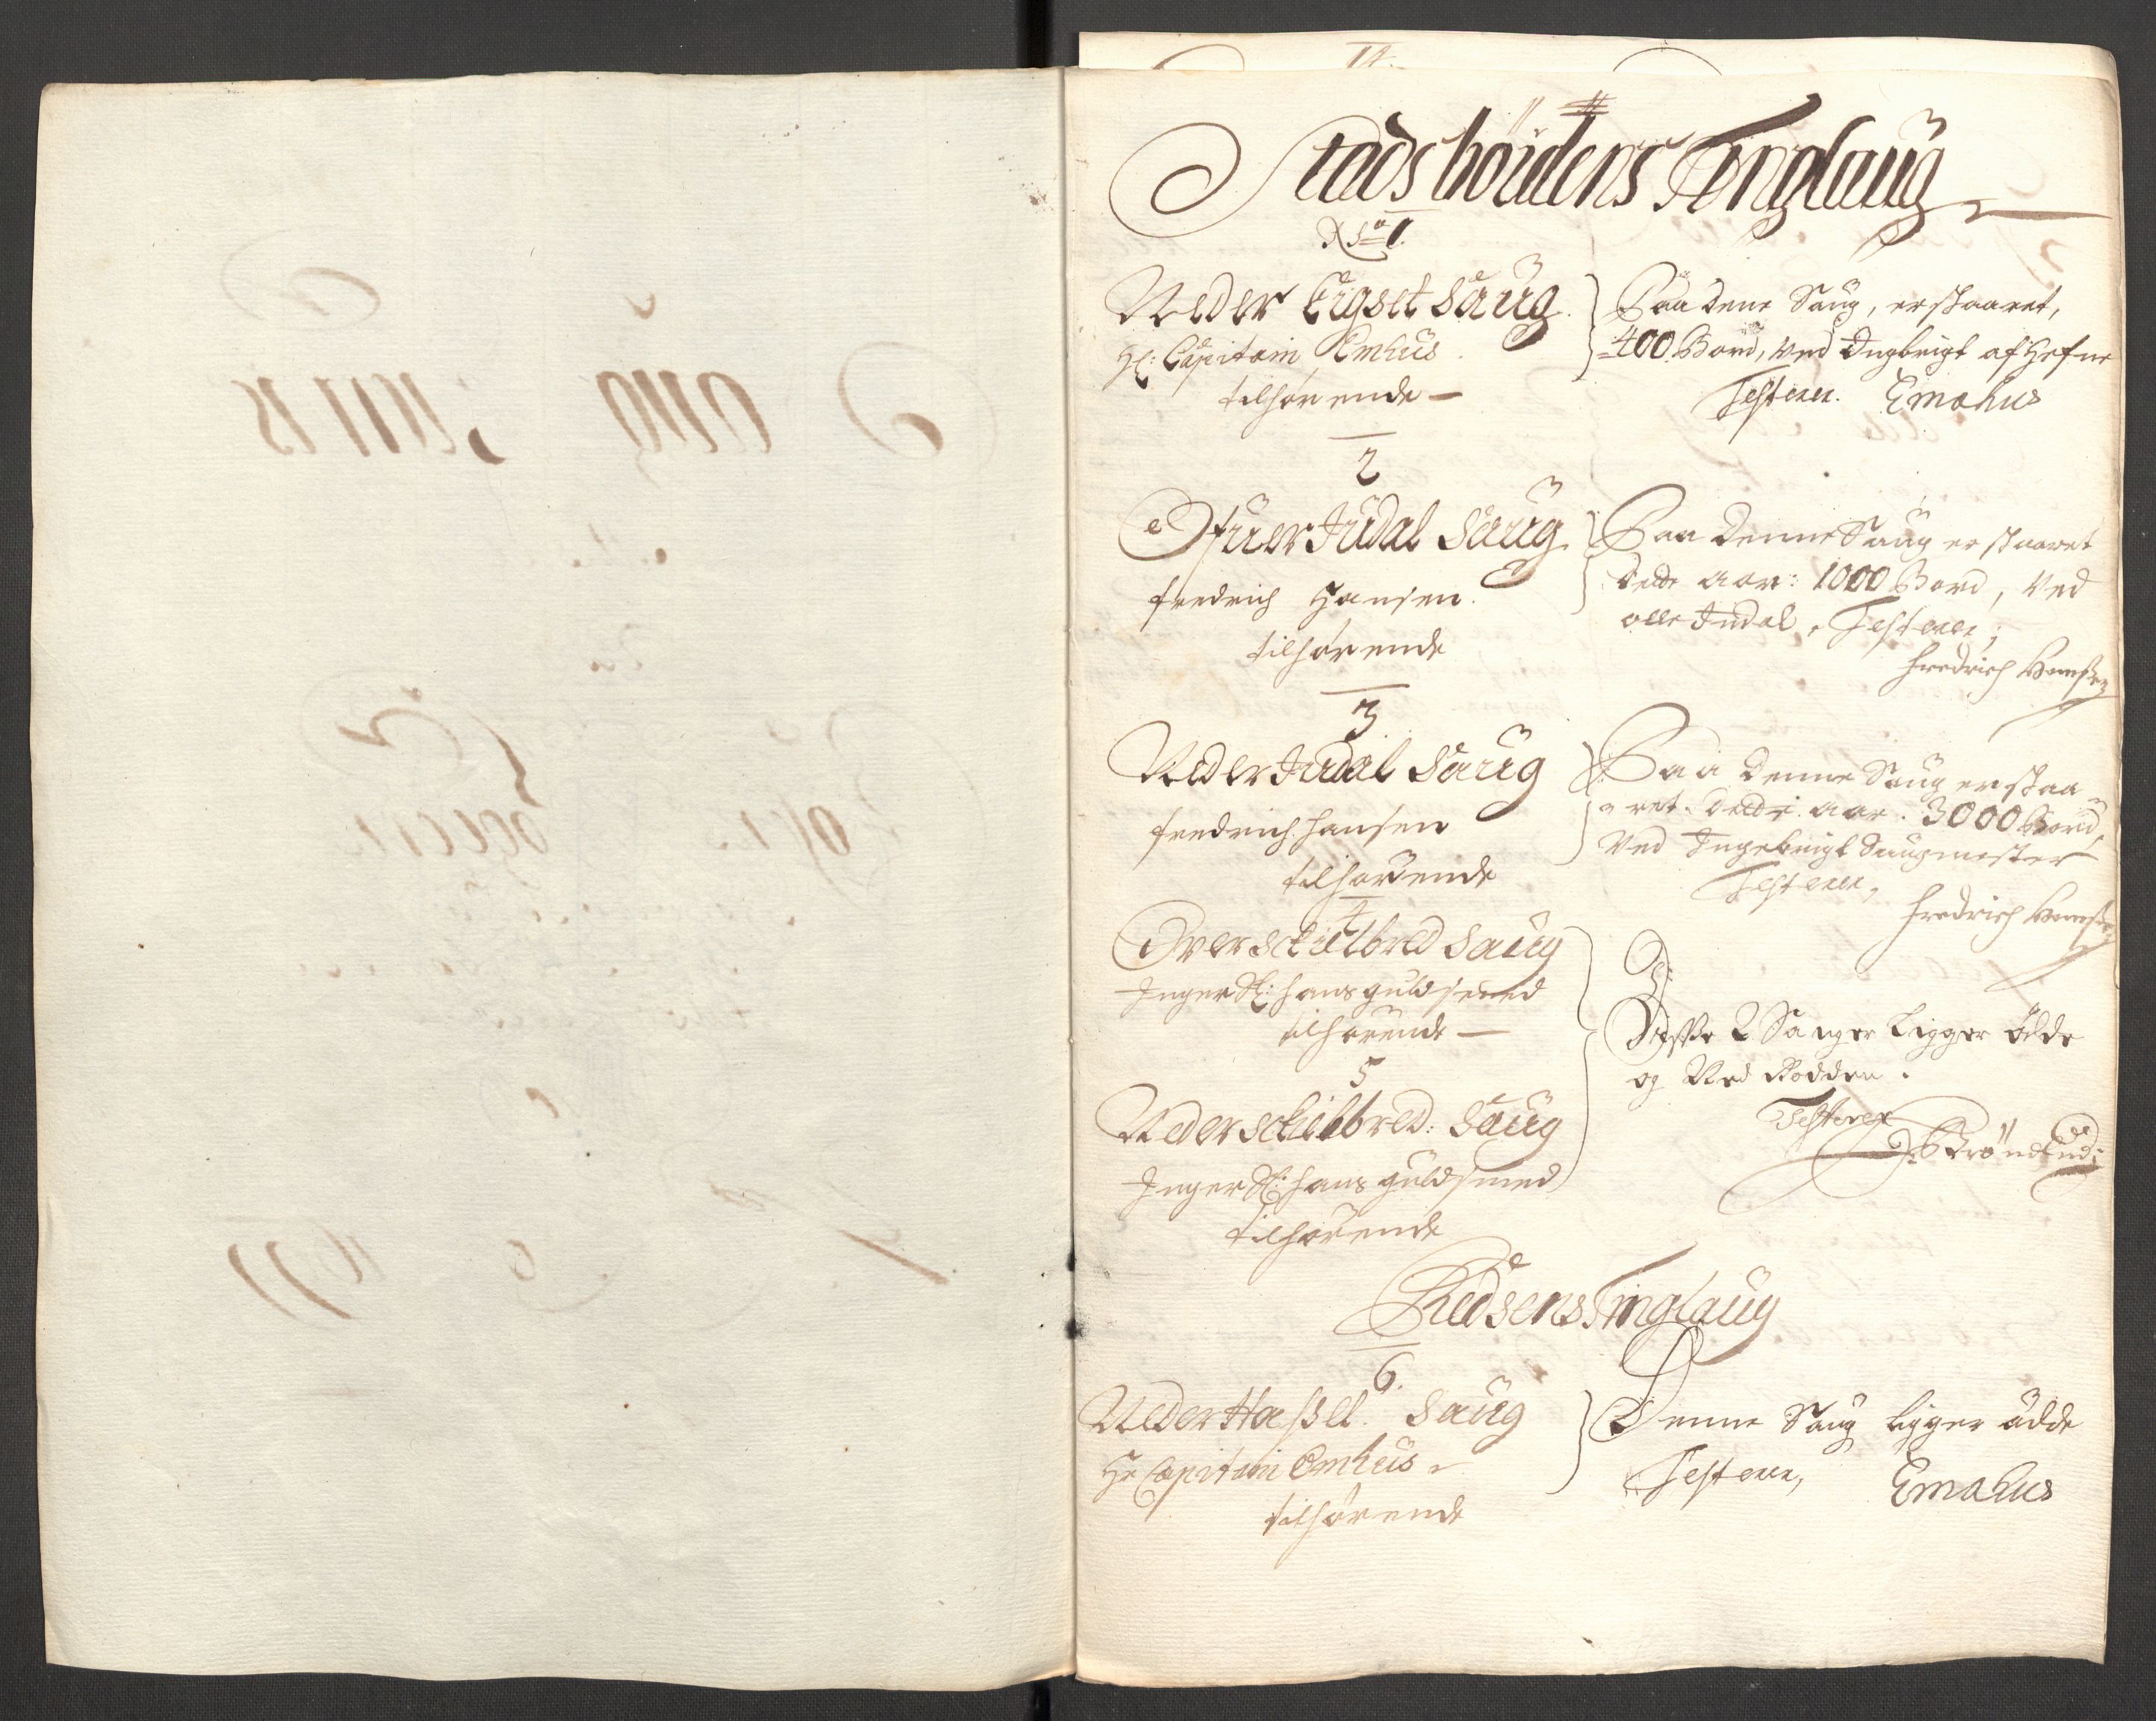 Stadsböidens Tinglaug
No 1.
Neder Eigset Saug
Hr: Capitain Emhus
tilhörende
Paa dene Saug, er skaaret,
400 Bord, ved Ingbrigt af Hefne
Testerer. Emahus
2
Ofuer Judal Saug
fredrich Hansen
tilhörende
Paa denne Saug er skaaret
dette aar: 1000 Bord, Ved
olle Judal, Testerer;
fredrich Hansen
3
Neder Judal Saug
fredrich hansen
tilhörende
Paa denne Saug er skaa-
ret dette aar. 3000 Bord,
Ved Ingebrigt Saugmester
Testerer,
fredrich Hansen
4
Over Schilbred Saug
Inger Sl: hans guldsmed
tilhörende
5
Neder Schilbred: Saug
Inger Sl: hans guldsmed
tilhörende
Disse 2 Sauger Ligger öde
og Ned Rodden.
Testerer
Bröndlund
Redsens Tinglaug
6.
Neder Hassel. Saug
Hr Capitain Emhus
tilhörende
Denne Saug ligger ödde
Testerer, Emahus